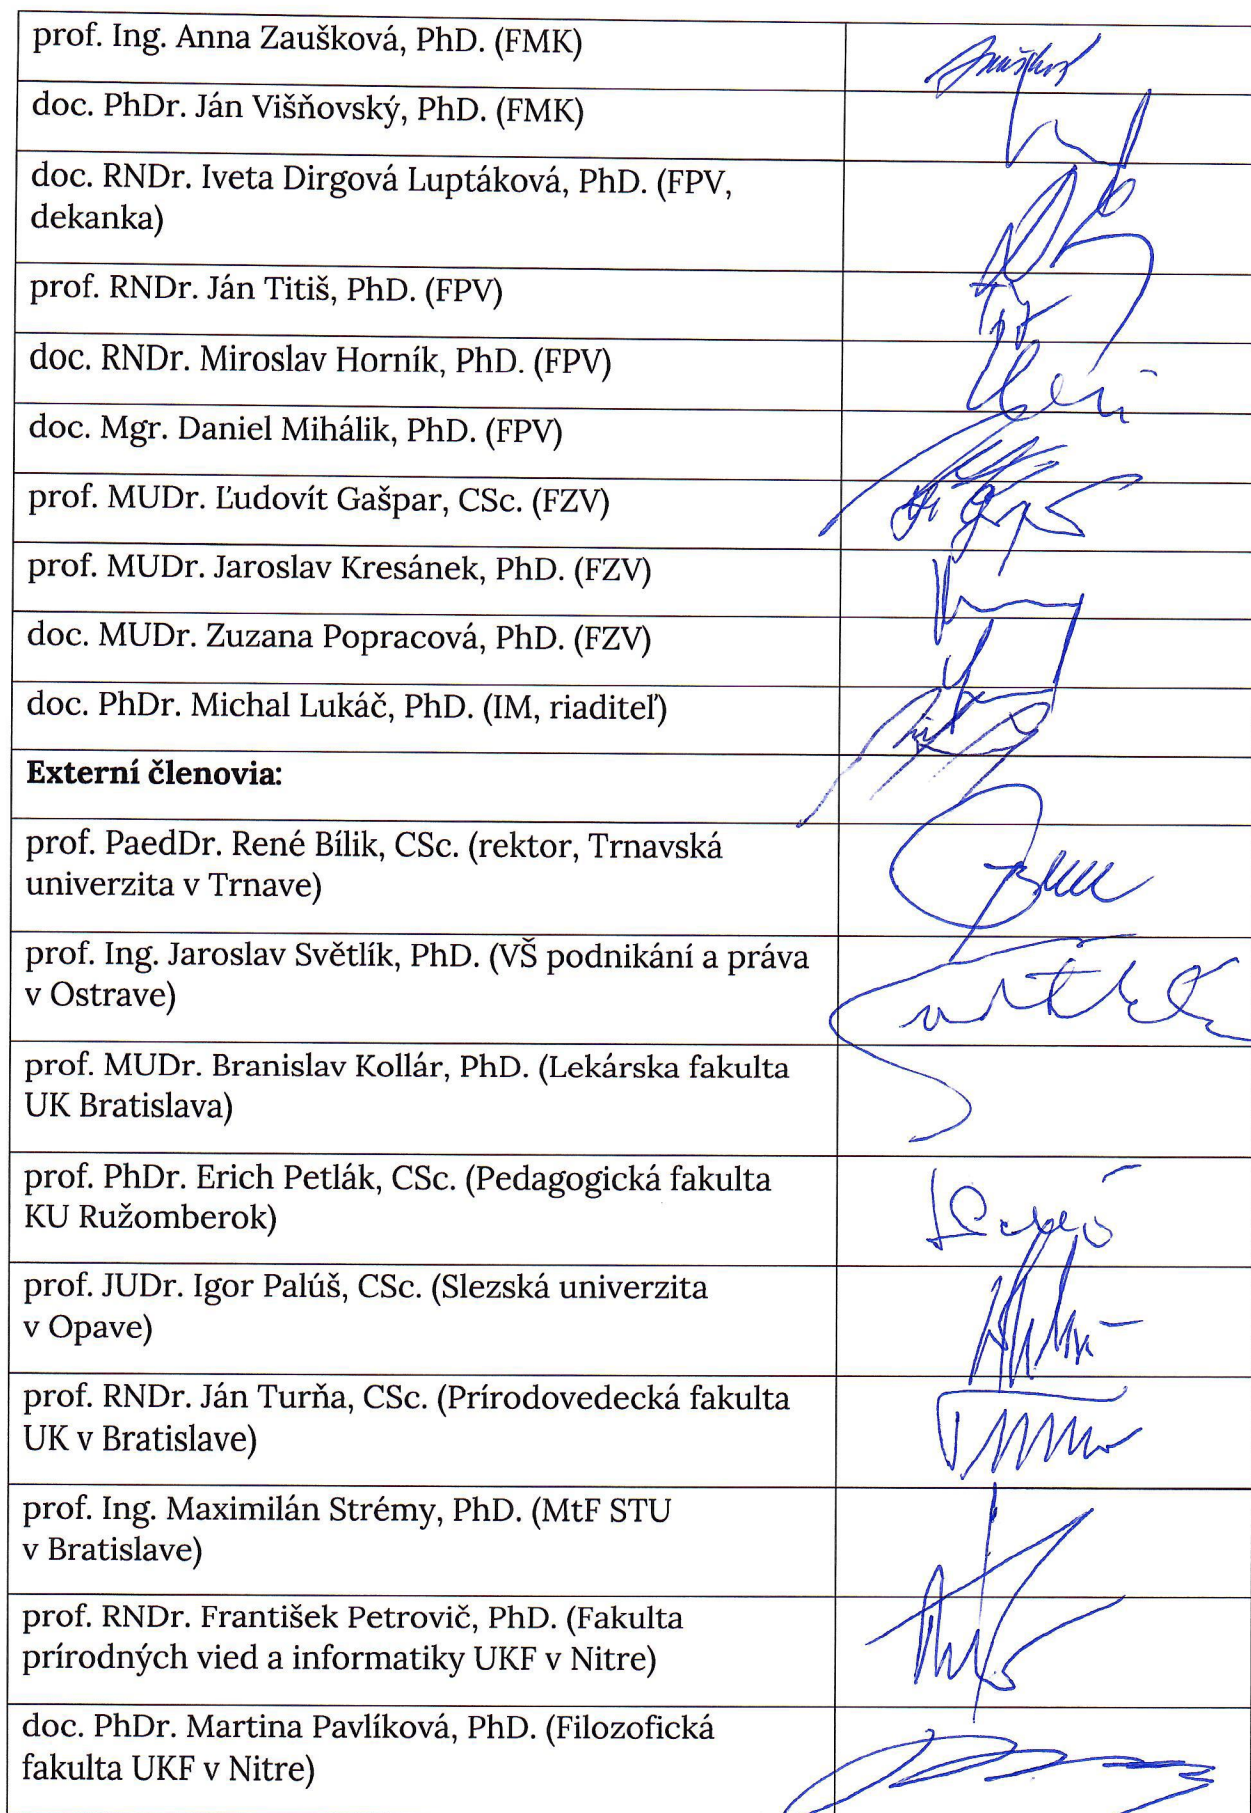 prof. Ing. Anna Zaušková, PhD. (FMK)
doc. PhDr. Ján Višňovský, PhD. (FMK)
doc. RNDr. Iveta Dirgová Luptáková, PhD. (FPV,
dekanka)
prof. RNDr. Ján Titiš, PhD. (FPV)
doc. RNDr. Miroslav Horník, PhD. (FPV)
doc. Mgr. Daniel Mihálik, PhD. (FPV)
prof. MUDr. Ľudovít Gašpar, CSc. (FZV)
prof. MUDr. Jaroslav Kresánek, PhD. (FZV)
doc. MUDr. Zuzana Popracová, PhD. (FZV)
doc. PhDr. Michal Lukáč, PhD. (IM, riaditeľ)
Externí členovia:
prof. PaedDr. René Bílik, CSc. (rektor, Trnavská
univerzita v Trnave)
prof. Ing. Jaroslav Světlík, PhD. (VŠ podnikání a práva
v Ostrave)
prof. MUDr. Branislav Kollár, PhD. (Lekárska fakulta
UK Bratislava)
prof. PhDr. Erich Petlák, CSc. (Pedagogická fakulta
KU Ružomberok)
prof. JUDr. Igor Palúš, CSc. (Slezská univerzita
v Opave)
prof. RNDr. Ján Turňa, CSc. (Prírodovedecká fakulta
UK v Bratislave)
prof. Ing. Maximilán Strémy, PhD. (MtF STU
v Bratislave)
prof. RNDr. František Petrovič, PhD. (Fakulta
prírodných vied a informatiky UKF v Nitre)
doc. PhDr. Martina Pavlíková, PhD. (Filozofická
fakulta UKF v Nitre)